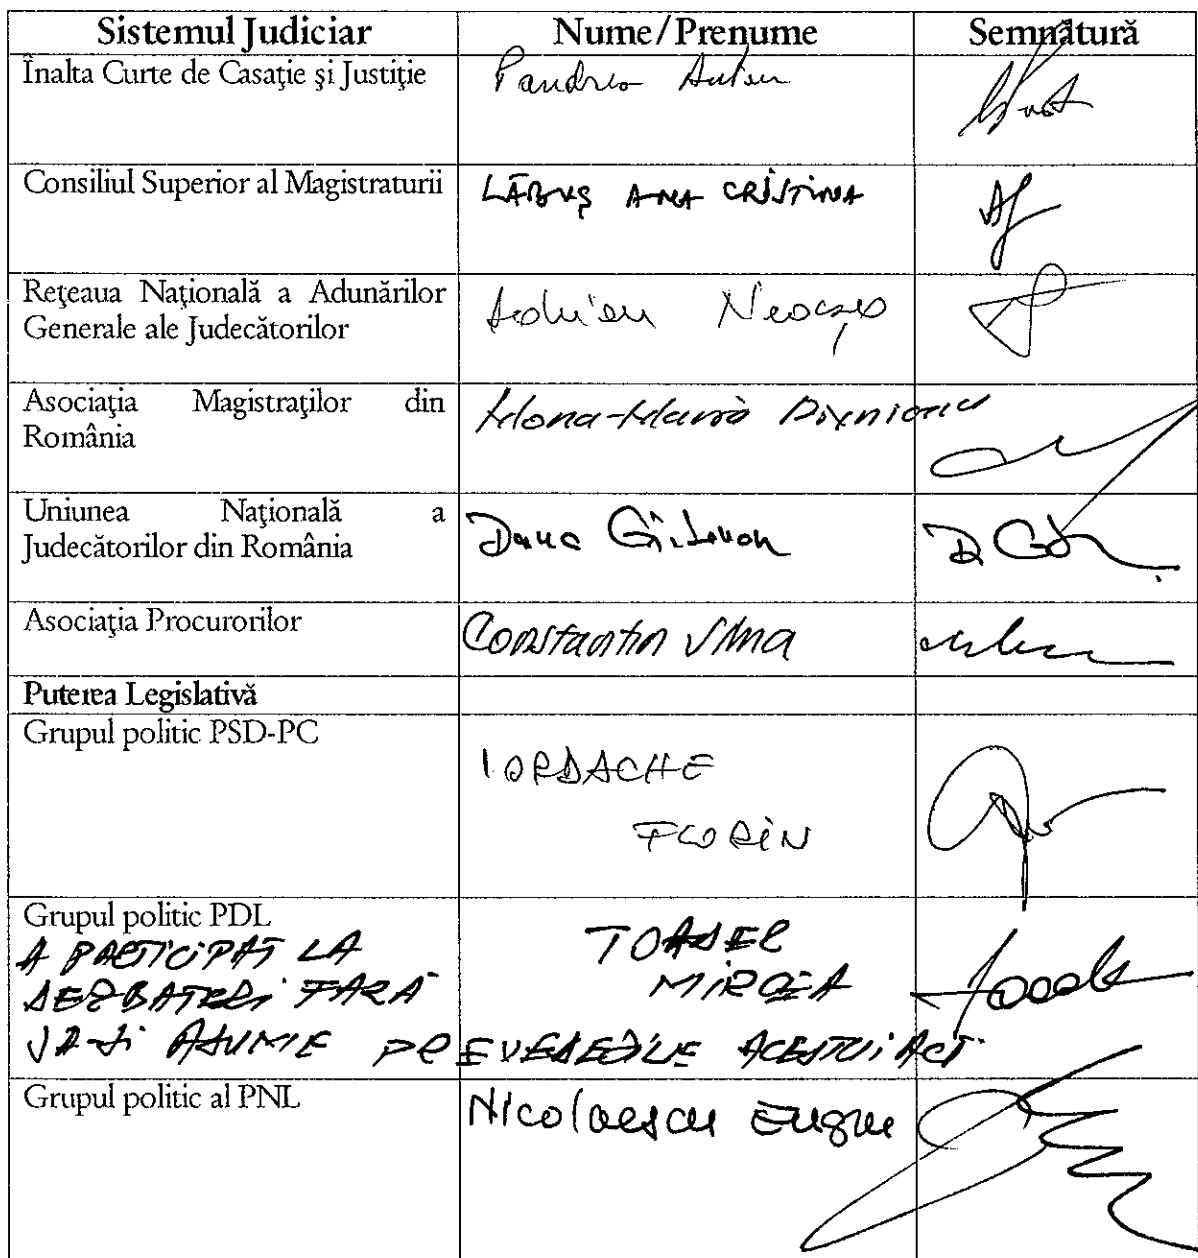 Sistemul Judiciar Nume/Prenume Semnătură
Înalta Curte de Casaţie şi Justiţie
Consiliul Superior al Magistraturii LĂBUŞ ANA CRISTINA
Reţeaua Naţională a Adunărilor
Generale ale Judecătorilor
Adrian Neacşu
Asociaţia Magistraţilor din
România
Mona-Maria
Uniunea Naţională a
Judecătorilor din România
Dana Gîrbovan
Asociaţia Procurorilor Constantin Sima
Puterea Legislativă
Grupul politic PSD-PC
IORDACHE
FLORIN
Grupul politic PDL
TOADER
MIRCEA
A PARTICIPAT LA
DEZBATERI FĂRĂ
SĂ-ŞI ASUME PREVEDERILE ACESTUI ACT
Grupul politic al PNL Nicolaescu Eugen